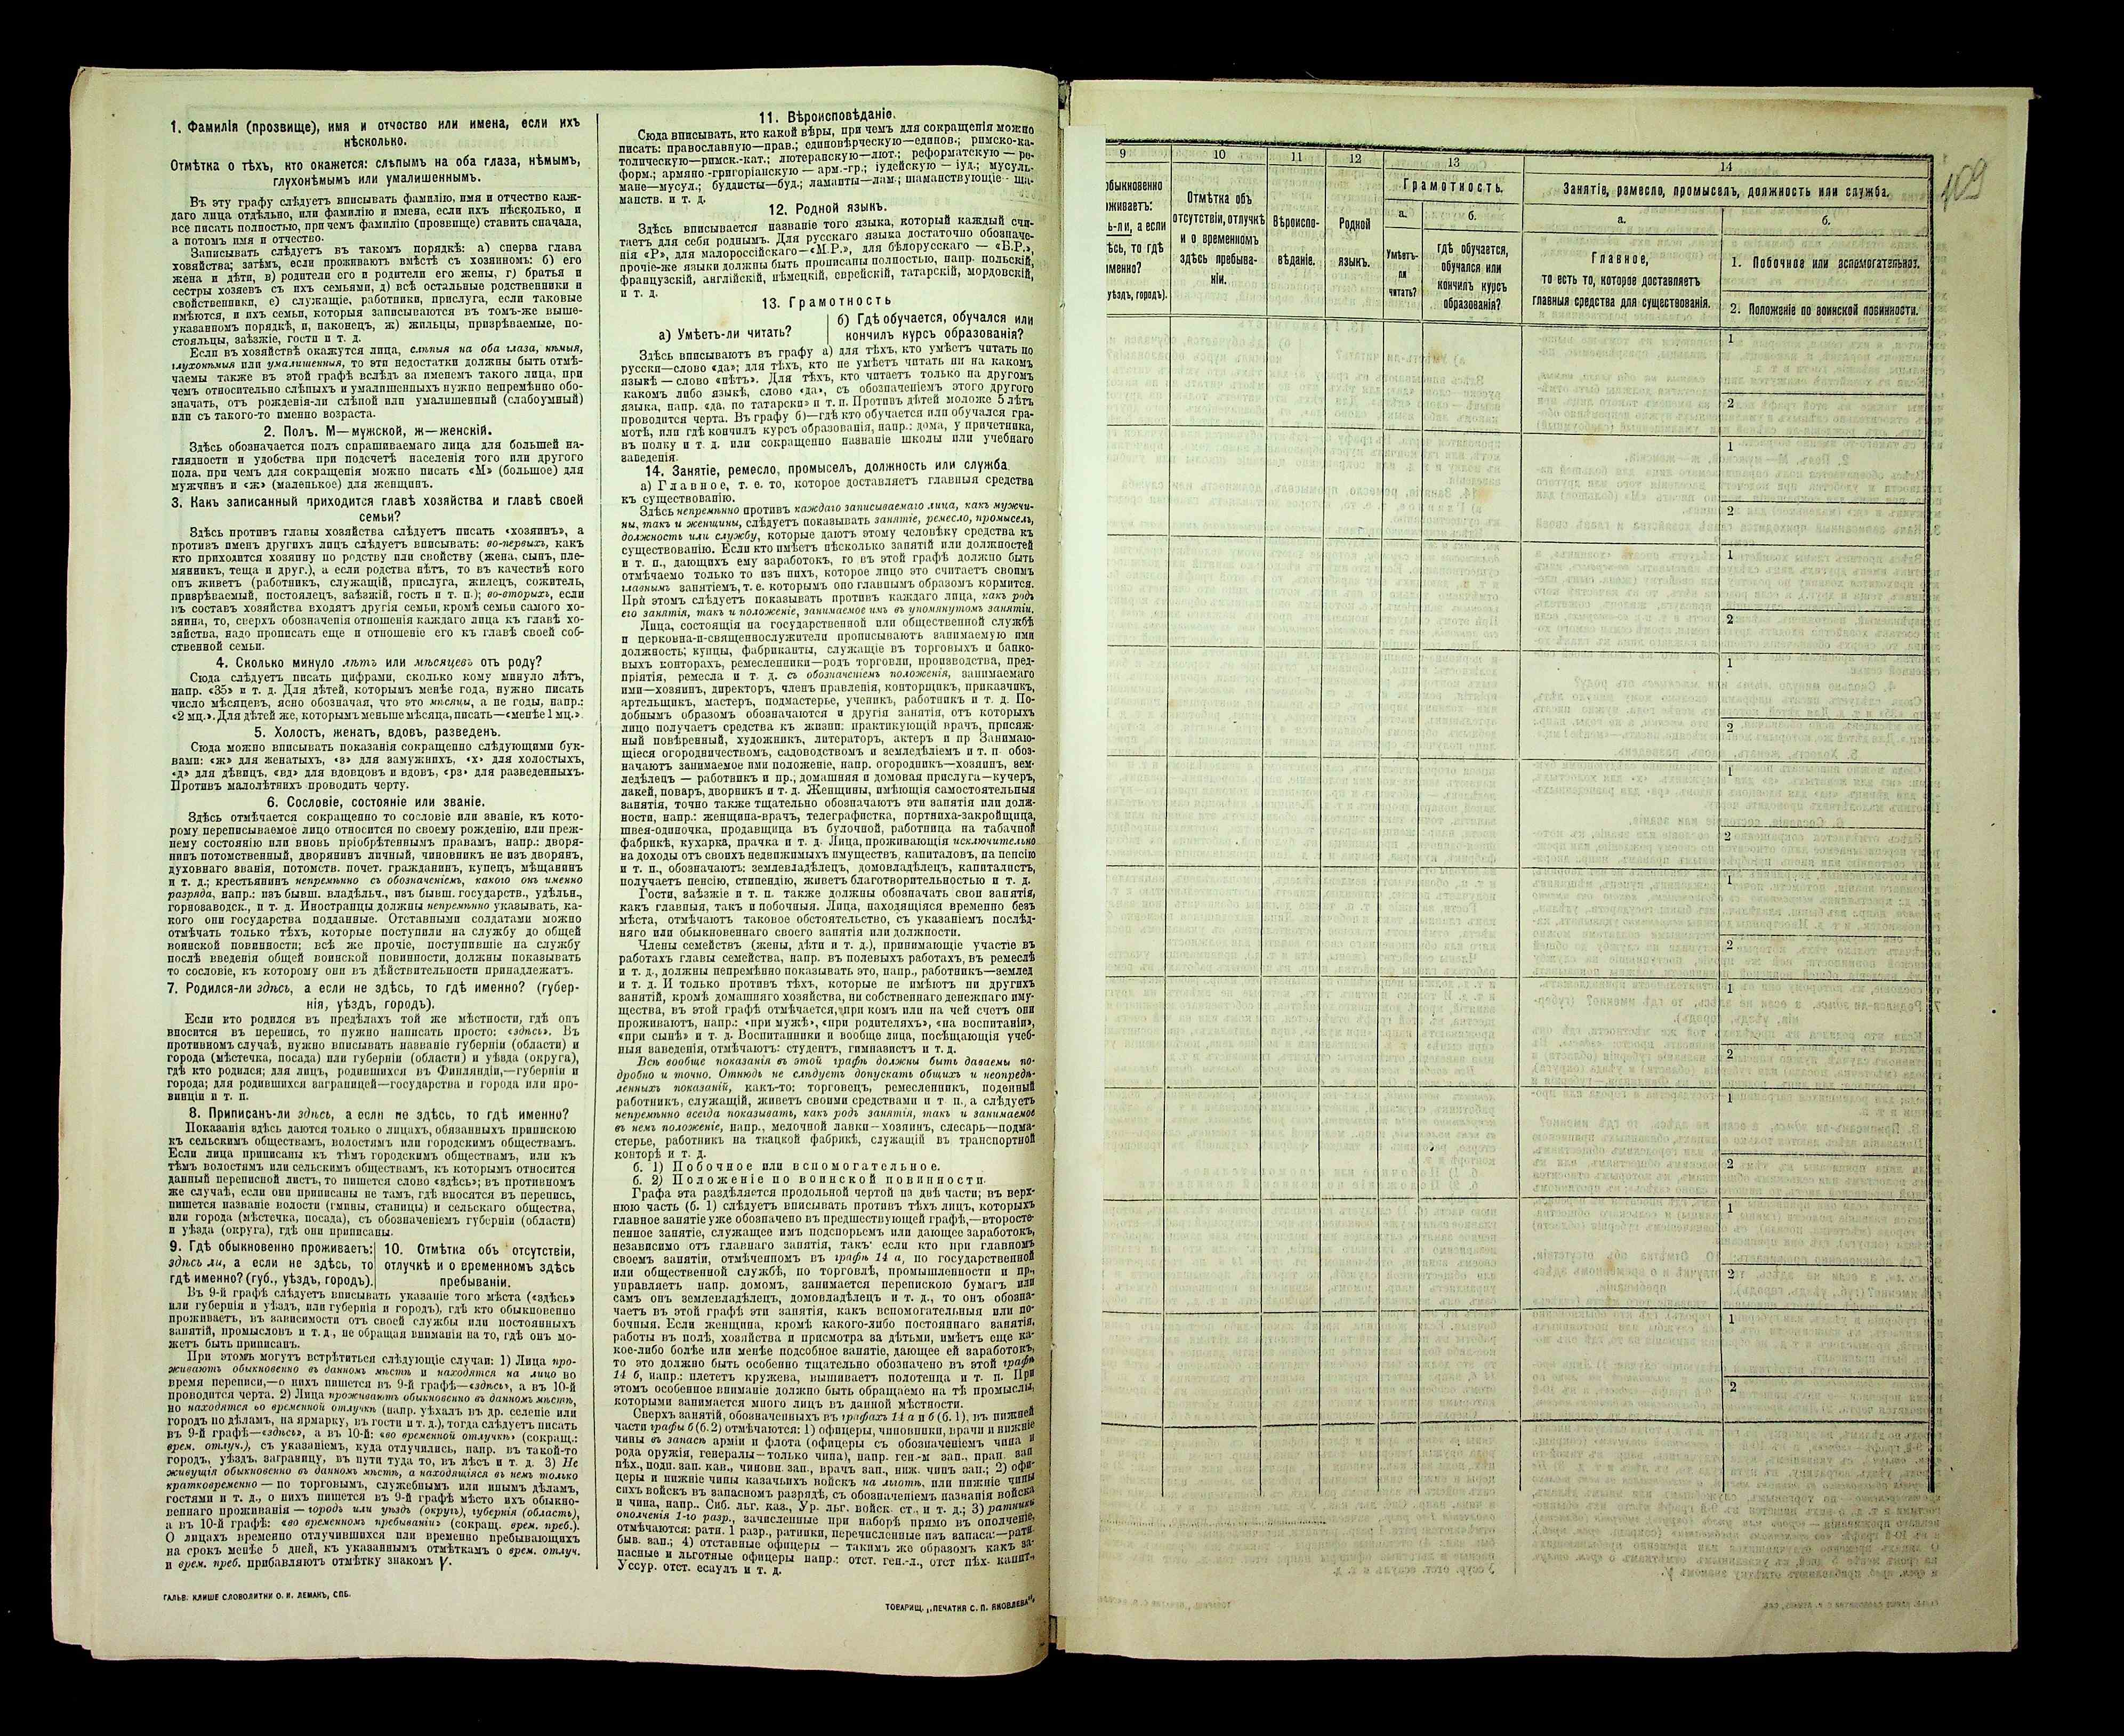 1. Фамилія (прозвище), имя и отчество или имена, если ихъ
нѣсколько.
Отмѣтка о тѣхъ, кто окажется: слѣпымъ на оба глаза, нѣмымъ,
глухонѣмымъ или умалишеннымъ.
Въ эту графу слѣдуетъ вписывать фамилію, имя и отчество каж-
даго лица отдѣльно, или фамилію и имена, если ихъ нѣсколько, и
все писать полностью, при чемъ фамилію (прозвище) ставить сначала,
а потомъ имя и отчество.
Записывать слѣдуетъ въ такомъ порядкѣ: а) сперва глава
хозяйства; затѣмъ, если проживаютъ вмѣстѣ съ хозяиномъ: б) его
жена и дѣти, в) родители его и родители его жены, г) братья и
сестры хозяевъ съ ихъ семьями, д) всѣ остальные родственники и
свойственники, е) служащіе, работники, прислуга, если таковые
имѣются, и ихъ семьи, которыя записываются въ томъ-же выше-
указанномъ порядкѣ, и, наконецъ, ж) жильцы, призрѣваемые, по-
стояльцы, заѣзжіе, гости и т. д.
Если въ хозяйствѣ окажутся лица, слѣпыя на оба глаза, нѣмыя,
глухонѣмыя или умалишенныя, то эти недостатки должны быть отмѣ-
чаемы также въ этой графѣ вслѣдъ за именемъ такого лица, при
чемъ относительно слѣпыхъ и умалишенныхъ нужно непремѣнно обо-
значать, отъ рожденія-ли слѣпой или умалишенный (слабоумный)
или съ такого-то именно возраста.
2. Полъ. М—мужской, ж—женскій.
Здѣсь обозначается полъ спрашиваемаго лица для большей на-
глядности и удобства при подсчетѣ населенія того или другого
пола, при чемъ для сокращенія можно писать «М» (большое) для
мужчинъ и «ж» (маленькое) для женщинъ.
3. Какъ записанный приходится главѣ хозяйства и главѣ своей
семьи?
Здѣсь противъ главы хозяйства слѣдуетъ писать «хозяинъ», а
противъ именъ другихъ лицъ слѣдуетъ вписывать: во-первыхъ, какъ
кто приходится хозяину по родству или свойству (жена, сынъ, пле-
мянникъ, теща и друг.), а если родства нѣтъ, то въ качествѣ кого
онъ живетъ (работникъ, служащій, прислуга, жилецъ, сожитель,
призрѣваемый, постоялецъ, заѣзжій, гость и т. п.); во-вторыхъ, если
въ составъ хозяйства входятъ другія семьи, кромѣ семьи самого хо-
зяина, то, сверхъ обозначенія отношенія каждаго лица къ главѣ хо-
зяйства, надо прописать еще и отношеніе его къ главѣ своей соб-
ственной семьи.
4. Сколько минуло лѣтъ или мѣсяцевъ отъ роду?
Сюда слѣдуетъ писать цифрами, сколько кому минуло лѣтъ,
напр. «35» и т. д. Для дѣтей, которымъ менѣе года, нужно писать
число мѣсяцевъ, ясно обозначая, что это мѣсяцы, а не годы, напр.:
«2 мц.». Для дѣтей же, которымъ меньше мѣсяца, писать—«менѣе 1 мц.».
5. Холостъ, женатъ, вдовъ, разведенъ.
Сюда можно вписывать показанія сокращенно слѣдующими бук-
вами: «ж» для женатыхъ, «з» для замужнихъ, «х» для холостыхъ,
«д» для дѣвицъ, «вд» для вдовцовъ и вдовъ, «рз» для разведенныхъ.
Противъ малолѣтнихъ проводить черту.
6. Сословіе, состояніе или званіе.
Здѣсь отмѣчается сокращенно то сословіе или званіе, къ кото-
рому переписываемое лицо относится по своему рожденію, или преж-
нему состоянію или вновь пріобрѣтеннымъ правамъ, напр.: дворя-
нинъ потомственный, дворянинъ личный, чиновникъ не изъ дворянъ,
духовнаго званія, потомств. почет. гражданинъ, купецъ, мѣщанинъ
и т. д.; крестьянинъ непремѣнно съ обозначеніемъ, какого онъ именно
разряда, напр.: изъ бывш. владѣльч., изъ бывш. государств., удѣльн.,
горнозаводск., и т. д. Иностранцы должны непремѣнно указывать, ка-
кого они государства подданные. Отставными солдатами можно
отмѣчать только тѣхъ, которые поступили на службу до общей
воинской повинности; всѣ же прочіе, поступившіе на службу
послѣ введенія общей воинской повинности, должны показывать
то сословіе, къ которому они въ дѣйствительности принадлежатъ.
7. Родился-ли здѣсь, а если не здѣсь, то гдѣ именно? (губер-
нія, уѣздъ, городъ).
Если кто родился въ предѣлахъ той же мѣстности, гдѣ онъ
вносится въ перепись, то нужно написать просто: «здѣсь». Въ
противномъ случаѣ, нужно вписывать названіе губерніи (области) и
города (мѣстечка, посада) или губерніи (области) и уѣзда (округа),
гдѣ кто родился; для лицъ, родившихся въ Финляндіи,—губерніи и
города; для родившихся заграницей—государства и города или про-
винціи и т. п.
8. Приписанъ-ли здѣсь, а если не здѣсь, то гдѣ именно?
Показанія здѣсь даются только о лицахъ, обязанныхъ припискою
къ сельскимъ обществамъ, волостямъ или городскимъ обществамъ.
Если лица приписаны къ тѣмъ городскимъ обществамъ, или къ
тѣмъ волостямъ или сельскимъ обществамъ, къ которымъ относится
данный переписной листъ, то пишется слово «здѣсь»; въ противномъ
же случаѣ, если они приписаны не тамъ, гдѣ вносятся въ перепись,
пишется названіе волости (гмины, станицы) и сельскаго общества,
или города (мѣстечка, посада), съ обозначеніемъ губерніи (области)
и уѣзда (округа), гдѣ они приписаны.
9. Гдѣ обыкновенно проживаетъ:
здѣсь ли, а если не здѣсь, то
гдѣ именно? (губ., уѣздъ, городъ).
10. Отмѣтка объ отсутствіи,
отлучкѣ и о временномъ здѣсь
пребываніи.
Въ 9-й графѣ слѣдуетъ вписывать указаніе того мѣста («здѣсь»
или губернія и уѣздъ, или губернія и городъ), гдѣ кто обыкновенно
проживаетъ, въ зависимости отъ своей службы или постоянныхъ
занятій, промысловъ и т. д., не обращая вниманія на то, гдѣ онъ мо-
жетъ быть приписанъ.
При этомъ могутъ встрѣтиться слѣдующіе случаи: 1) Лица про-
живаютъ обыкновенно въ данномъ мѣстѣ и находятся на лицо во
время переписи,—о нихъ пишется въ 9-й графѣ—«здѣсь», а въ 10-й
проводится черта. 2) Лица проживаютъ обыкновенно въ данномъ мѣстѣ,
но находятся во временной отлучкѣ (напр. уѣхалъ въ др. селеніе или
городъ по дѣламъ, на ярмарку, въ гости и т. д.), тогда слѣдуетъ писать
въ 9-й графѣ—«здѣсь», а въ 10-й: «во временной отлучкѣ» (сокращ.:
врем. отлуч.), съ указаніемъ, куда отлучились, напр. въ такой-то
городъ, уѣздъ, заграницу, въ пути туда то, въ лѣсъ и т. д. 3) Не
живущія обыкновенно въ данномъ мѣстѣ, а находящіяся въ немъ только
кратковременно — по торговымъ, служебнымъ или инымъ дѣламъ,
гостями и т. д., о нихъ пишется въ 9-й графѣ мѣсто ихъ обыкно-
веннаго проживанія — городъ или уѣздъ (округъ), губернія (область),
а въ 10-й графѣ: «во временномъ пребываніи» (сокращ. врем. преб.).
О лицахъ временно отлучившихся или временно пребывающихъ
на срокъ менѣе 5 дней, къ указаннымъ отмѣткамъ о врем. отлуч.
и врем. преб. прибавляютъ отмѣтку знакомъ V.
ГАЛЬВ. КЛИШЕ СЛОВОЛИТНИ О. И. ЛЕМАНЪ, СПБ.
11. Вѣроисповѣданіе.
Сюда вписывать, кто какой вѣры, при чемъ для сокращенія можно
писать: православную—прав.; единовѣрческую—единов.; римско-ка-
толическую—римск.-кат.; лютеранскую—лют.; реформатскую — ре-
форм.; армяно-григоріанскую — арм.-гр.; іудейскую — іуд.; мусуль-
мане—мусул.; буддисты—буд.; ламаиты—лам.; шаманствующіе—ша-
манств. и т. д.
12. Родной языкъ.
Здѣсь вписывается названіе того языка, который каждый счи-
таетъ для себя роднымъ. Для русскаго языка достаточно обозначе-
нія «Р», для малороссійскаго—«М.Р.», для бѣлорусскаго — «Б.Р.»,
прочіе-же языки должны быть прописаны полностью, напр. польскій,
французскій, англійскій, нѣмецкій, еврейскій, татарскій, мордовскій,
и т. д.
13. Грамотность
а) Умѣетъ-ли читать?
б) Гдѣ обучается, обучался или
кончилъ курсъ образованія?
Здѣсь вписываютъ въ графу а) для тѣхъ, кто умѣетъ читать по
русски—слово «да»; для тѣхъ, кто не умѣетъ читать ни на какомъ
языкѣ — слово «нѣтъ». Для тѣхъ, кто читаетъ только на другомъ
какомъ либо языкѣ, слово «да», съ обозначеніемъ этого другого
языка, напр. «да, по татарски» и т. п. Противъ дѣтей моложе 5 лѣтъ
проводится черта. Въ графу б)—гдѣ кто обучается или обучался гра-
мотѣ, или гдѣ кончилъ курсъ образованія, напр.: дома, у причетника,
въ полку и т. д. или сокращенно названіе школы или учебнаго
заведенія.
14. Занятіе, ремесло, промыселъ, должность или служба
а) Главное, т. е. то, которое доставляетъ главныя средства
къ существованію.
Здѣсь непремѣнно противъ каждаго записываемаго лица, какъ мужчи-
ны, такъ и женщины, слѣдуетъ показывать занятіе, ремесло, промыселъ,
должность или службу, которые даютъ этому человѣку средства къ
существованію. Если кто имѣетъ нѣсколько занятій или должностей
и т. п., дающихъ ему заработокъ, то въ этой графѣ должно быть
отмѣчаемо только то изъ нихъ, которое лицо это считаетъ своимъ
главнымъ занятіемъ, т. е. которымъ оно главнымъ образомъ кормится.
При этомъ слѣдуетъ показывать противъ каждаго лица, какъ родъ
его занятія, такъ и положеніе, занимаемое имъ въ упомянутомъ занятіи.
Лица, состоящія на государственной или общественной службѣ
и церковно-и-священнослужители прописываютъ занимаемую ими
должность; купцы, фабриканты, служащіе въ торговыхъ и банко-
выхъ конторахъ, ремесленники—родъ торговли, производства, пред-
пріятія, ремесла и т. д. съ обозначеніемъ положенія, занимаемаго
ими—хозяинъ, директоръ, членъ правленія, конторщикъ, приказчикъ,
артельщикъ, мастеръ, подмастерье, ученикъ, работникъ и т. д. По-
добнымъ образомъ обозначаются и другія занятія, отъ которыхъ
лицо получаетъ средства къ жизни: практикующій врачъ, присяж-
ный повѣренный, художникъ, литераторъ, актеръ и пр Занимаю-
щіеся огородничествомъ, садоводствомъ и земледѣліемъ и т. п. обоз-
начаютъ занимаемое ими положеніе, напр. огородникъ—хозяинъ, зем-
ледѣлецъ — работникъ и пр.; домашняя и домовая прислуга—кучеръ,
лакей, поваръ, дворникъ и т. д. Женщины, имѣющія самостоятельныя
занятія, точно также тщательно обозначаютъ эти занятія или долж-
ности, напр.: женщина-врачъ, телеграфистка, портниха-закройщица,
швея-одиночка, продавщица въ булочной, работница на табачной
фабрикѣ, кухарка, прачка и т. д. Лица, проживающія исключительно
на доходы отъ своихъ недвижимыхъ имуществъ, капиталовъ, на пенсію
и т. п., обозначаютъ: землевладѣлецъ, домовладѣлецъ, капиталистъ,
получаетъ пенсію, стипендію, живетъ благотворительностью и т. д.
Гости, заѣзжіе и т. п. также должны обозначать свои занятія,
какъ главныя, такъ и побочныя. Лица, находящіяся временно безъ
мѣста, отмѣчаютъ таковое обстоятельство, съ указаніемъ послѣд-
няго или обыкновеннаго своего занятія или должности.
Члены семействъ (жены, дѣти и т. д.), принимающіе участіе въ
работахъ главы семейства, напр. въ полевыхъ работахъ, въ ремеслѣ
и т. д., должны непремѣнно показывать это, напр., работникъ—землед
и т. д. И только противъ тѣхъ, которые не имѣютъ ни другихъ
занятій, кромѣ домашняго хозяйства, ни собственнаго денежнаго иму-
щества, въ этой графѣ отмѣчается, при комъ или на чей счетъ они
проживаютъ, напр.: «при мужѣ», «при родителяхъ», «на воспитаніи»,
«при сынѣ» и т. д. Воспитанники и вообще лица, посѣщающія учеб-
ныя заведенія, отмѣчаютъ: студентъ, гимназистъ и т. д.
Всѣ вообще показанія въ этой графѣ должны быть даваемы по-
дробно и точно. Отнюдь не слѣдуетъ допускать общихъ и неопредѣ-
ленныхъ показаній, какъ-то: торговецъ, ремесленникъ, поденный
работникъ, служащій, живетъ своими средствами и т п., а слѣдуетъ
непремѣнно всегда показывать, какъ родъ занятія, такъ и занимаемое
въ немъ положеніе, напр., мелочной лавки—хозяинъ, слесарь—подма-
стерье, работникъ на ткацкой фабрикѣ, служащій въ транспортной
конторѣ и т. д.
б. 1) Побочное или вспомогательное.
б. 2) Положеніе по воинской повинности.
Графа эта раздѣляется продольной чертой на двѣ части; въ верх-
нюю часть (б. 1) слѣдуетъ вписывать противъ тѣхъ лицъ, которыхъ
главное занятіе уже обозначено въ предшествующей графѣ,—второсте-
пенное занятіе, служащее имъ подспорьемъ или дающее заработокъ,
независимо отъ главнаго занятія, такъ: если кто при главномъ
своемъ занятіи, отмѣченномъ въ графѣ 14 а, по государственной
или общественной службѣ, по торговлѣ, промышленности и пр.,
управляетъ напр. домомъ, занимается перепискою бумагъ или
самъ онъ землевладѣлецъ, домовладѣлецъ и т. д., то онъ обозна-
чаетъ въ этой графѣ эти занятія, какъ вспомогательныя или по-
бочныя. Если женщина, кромѣ какого-либо постояннаго занятія,
работы въ полѣ, хозяйства и присмотра за дѣтьми, имѣетъ еще ка-
кое-либо болѣе или менѣе подсобное занятіе, дающее ей заработокъ,
то это должно быть особенно тщательно обозначено въ этой графѣ
14 б, напр.: плететъ кружева, вышиваетъ полотенца и т. п. При
этомъ особенное вниманіе должно быть обращаемо на тѣ промыслы,
которыми занимается много лицъ въ данной мѣстности.
Сверхъ занятій, обозначенныхъ въ графахъ 14 а и б (б. 1), въ нижней
части графы б (б. 2) отмѣчаются: 1) офицеры, чиновники, врачи и нижніе
чины въ запасѣ арміи и флота (офицеры съ обозначеніемъ чина и
рода оружія, генералы—только чина), напр. ген.-м зап., прап. зап
пѣх., подп. зап. кав., чиновн. зап., врачъ зап., ниж. чинъ зап.; 2) офи-
церы и нижніе чины казачьихъ войскъ на льготѣ, или нижніе чины
сихъ войскъ въ запасномъ разрядѣ, съ обозначеніемъ названія войска
и чина, напр.. Сиб. льг. каз., Ур. льг. войск. ст., и т. д.; 3) ратники
ополченія 1-го разр., зачисленные при наборѣ прямо въ ополченіе,
отмѣчаются: ратн. 1 разр., ратники, перечисленные изъ запаса:—ратн.
быв. зап.; 4) отставные офицеры — такимъ же образомъ какъ за-
пасные и льготные офицеры напр.: отст. ген.-л., отст пѣх. капит.,
Уссур. отст. есаулъ и т. д.
ТОВАРИЩ. „ПЕЧАТНЯ С. П. ЯКОВЛЕВА“.
109
9
10
11
12
13
14
обыкновенно
живаетъ:
ь-ли, а если
ѣсь, то гдѣ
менно?
уѣздъ, городъ).
Отмѣтка объ
отсутствіи, отлучкѣ
и о временномъ
здѣсь пребыва-
ніи.
Вѣроиспо-
вѣданіе.
Родной
языкъ.
Грамотность.
а.
Умѣетъ-
ли
читать?
б.
гдѣ обучается,
обучался или
кончилъ курсъ
образованія?
Занятіе, ремесло, промыселъ, должность или служба.
а.
Главное,
то есть то, которое доставляетъ
главныя средства для существованія.
б.
1. Побочное или вспомогательное.
2. Положеніе по воинской повинности.
1
2
1
2
1
2
1
2
1
2
1
2
1
2
1
2
1
2
1
2